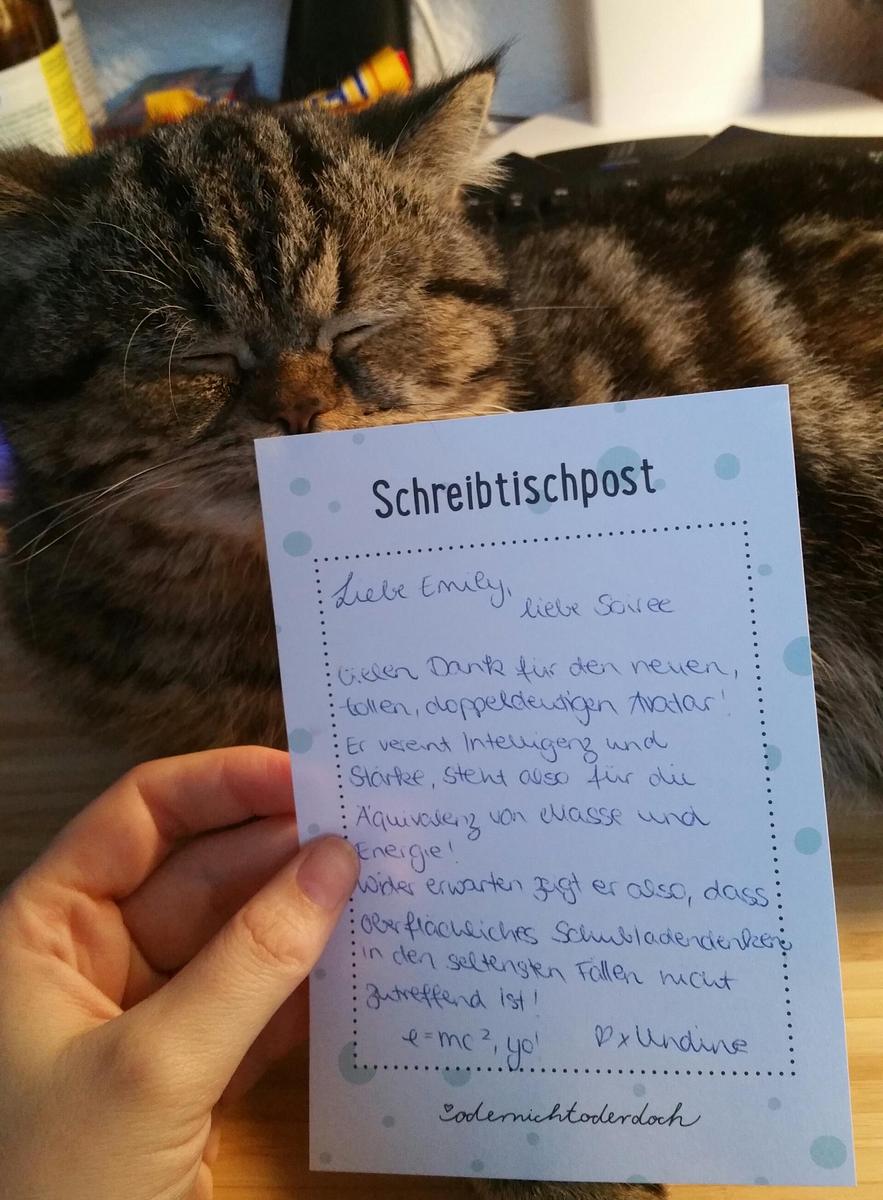 Schreibtischpost
Liebe Emily,
liebe Soiree
Vielen Dank für den neuen,
tollen, doppeldeutigen Avatar!
Er vereint Intelligenz und
Stärke, steht also für die
Äquivalenz von Masse und
Energie!
Wider erwarten zeigt er also, dass
oberflächliches Schubladendenken
in den seltensten Fällen nicht
zutreffend ist!
e=mc², yo! ♡x Undine
odernichtoderdoch